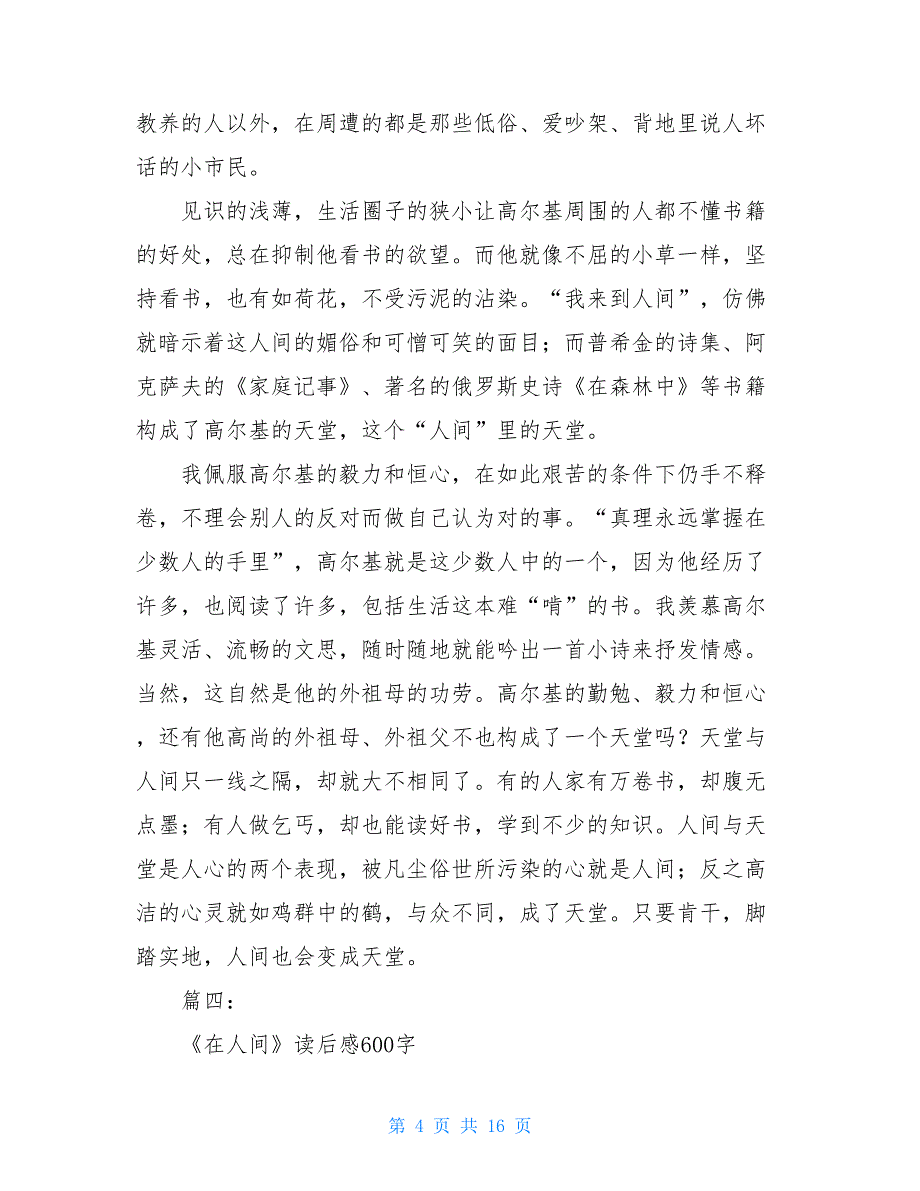 教养的人以外，在周遭的都是那些低俗、爱吵架、背地里说人坏
话的小市民。
见识的浅薄，生活圈子的狭小让高尔基周围的人都不懂书籍
的好处，总在抑制他看书的欲望。而他就像不屈的小草一样，坚
持看书，也有如荷花，不受污泥的沾染。“我来到人间”，仿佛
就暗示着这人间的媚俗和可憎可笑的面目；而普希金的诗集、阿
克萨夫的《家庭记事》、著名的俄罗斯史诗《在森林中》等书籍
构成了高尔基的天堂，这个“人间”里的天堂。
我佩服高尔基的毅力和恒心，在如此艰苦的条件下仍手不释
卷，不理会别人的反对而做自己认为对的事。“真理永远掌握在
少数人的手里”，高尔基就是这少数人中的一个，因为他经历了
许多，也阅读了许多，包括生活这本难“啃”的书。我羡慕高尔
基灵活、流畅的文思，随时随地就能吟出一首小诗来抒发情感。
当然，这自然是他的外祖母的功劳。高尔基的勤勉、毅力和恒心
，还有他高尚的外祖母、外祖父不也构成了一个天堂吗？天堂与
人间只一线之隔，却就大不相同了。有的人家有万卷书，却腹无
点墨；有人做乞丐，却也能读好书，学到不少的知识。人间与天
堂是人心的两个表现，被凡尘俗世所污染的心就是人间；反之高
洁的心灵就如鸡群中的鹤，与众不同，成了天堂。只要肯干，脚
踏实地，人间也会变成天堂。
篇四：
《在人间》读后感600字
第 4 页 共 16 页